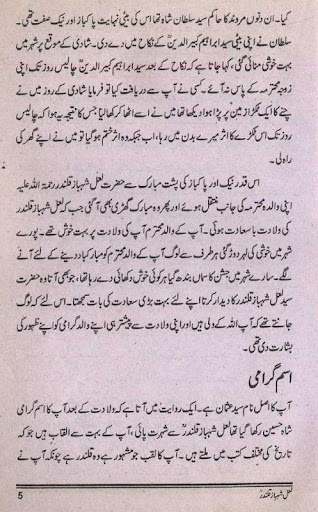 کیا۔ ان دنوں مروند کا حاکم سید سلطان شاہ تھا اس کی بیٹی نہایت پاکباز و نیک صفت تھی۔
سلطان نے اپنی بیٹی سید ابراہیم کبیر الدینؒ کے نکاح میں دے دی۔ شادی کے موقع پر شہر میں
بہت خوشی منائی گئی، کہا جاتا ہے کہ نکاح کے بعد سید ابراہیم کبیر الدینؒ چالیس روز تک اپنی
زوجہ محترمہ کے پاس نہ آئے۔ کسی نے آپ سے دریافت کیا تو فرمایا شادی کے روز میں نے
چنے کا ایک ٹکڑا زمین پر پڑا ہوا دیکھا تھا میں نے اسے اٹھا کر کھا لیا جس کا نتیجہ یہ ہوا کہ چالیس
روز تک اس ٹکڑے کا اثر میرے بدن میں رہا، اب جبکہ وہ اثر ختم ہو گیا تو میں نے اپنے گھر کی
راہ لی۔
اس قدر نیک اور پاکباز کی پشت مبارک سے حضرت لعل شہباز قلندر رحمۃ اللہ علیہ
اپنی والدہ محترمہ کی جانب منتقل ہوئے اور پھر وہ مبارک گھڑی بھی آ گئی جب کہ لعل شہباز قلندرؒ
کی ولادت با سعادت ہوئی۔ آپ کے والد محترم آپ کی ولادت پر بہت خوش تھے۔ پورے
شہر میں خوشی کی لہر دوڑ گئی ہر طرف سے لوگ آپ کے والد محترم کو مبارکباد دینے کے لئے آنے
لگے۔ سارے شہر میں جشن کا سماں بندھ گیا ہر کوئی خوش دکھائی دے رہا تھا، جو بھی آتا وہ حضرت
سید لعل شہباز قلندرؒ کا دیدار کرتا اور اپنے لئے بہت بڑی سعادت کی بات سمجھتا۔ اس لئے کہ لوگ
جانتے تھے کہ آپ اللہ کے ولی ہیں اور اپنی ولادت سے پیشتر ہی اپنے والد گرامی کو اپنے ظہور کی
بشارت دی تھی۔
اسم گرامی
آپ کا اصل نام سید عثمان ہے۔ ایک روایت میں آتا ہے کہ ولادت کے بعد آپ کا اسم گرامی
شاہ حسین رکھا گیا تھا لعل شہباز قلندرؒ سے شہرت پائی، آپ کے بہت سے القاب ہیں جو کہ
تاریخ کی مختلف کتب میں ملتے ہیں۔ آپ کا لقب جو مشہور ہے وہ قلندر ہے چونکہ آپ نے
لعل شہباز قلندرؒ
5